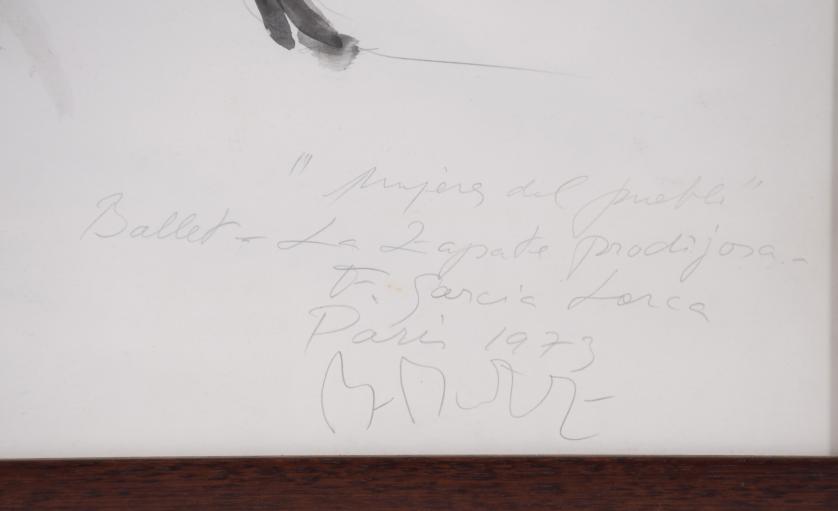 "Mujeres del pueblo"
Ballet - La Zapate prodijosa -
F. Garcia Lorca
Paris 1973